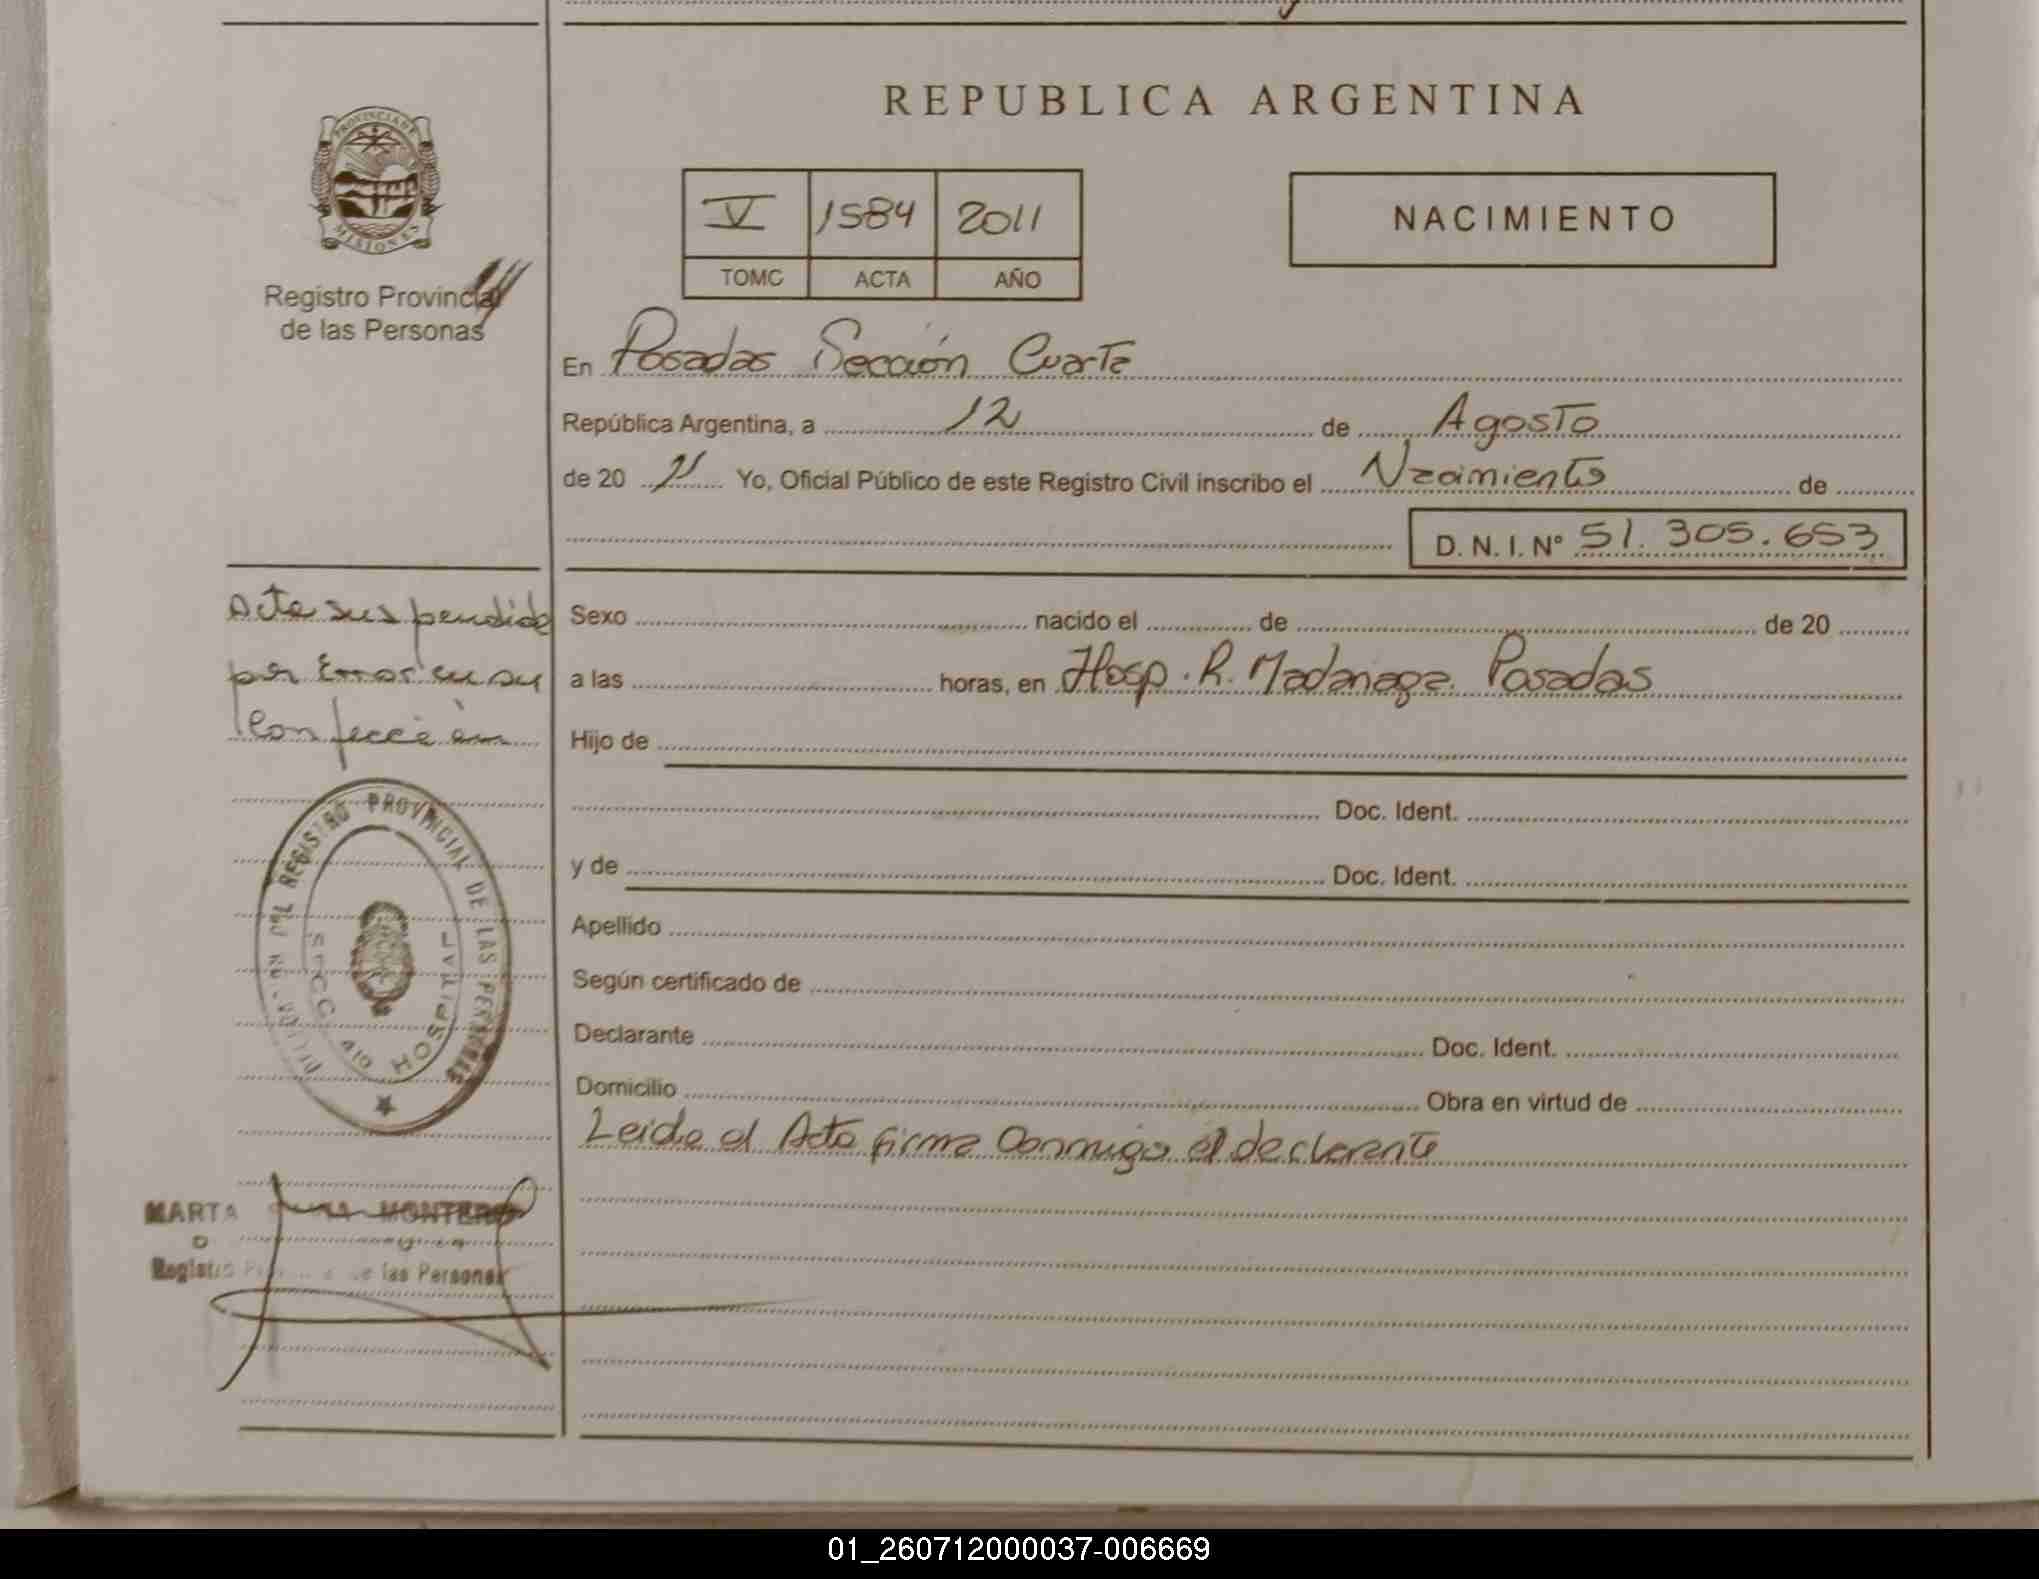 REPUBLICA ARGENTINA
PROVINCIA DE
MISIONES
Registro Provincial
de las Personas
V 1584 2011
TOMO ACTA AÑO
NACIMIENTO
En Posadas Sección Cuarta
República Argentina, a 12 de Agosto
de 20 11 Yo, Oficial Público de este Registro Civil inscribo el Nacimiento de
D. N. I. Nº 51.305.653
Acta suspendida
por Error en su
Confección
REGISTRO PROVINCIAL DE LAS PERSONAS
HOSPITAL
MARTA MONTERO
Registro de las Personas
Sexo nacido el de de 20
a las horas, en Hosp. R. Madariaga. Posadas
Hijo de
Doc. Ident.
y de Doc. Ident.
Apellido
Según certificado de
Declarante Doc. Ident.
Domicilio Obra en virtud de
Leida el Acta firma Conmigo el declarante
01_260712000037-006669